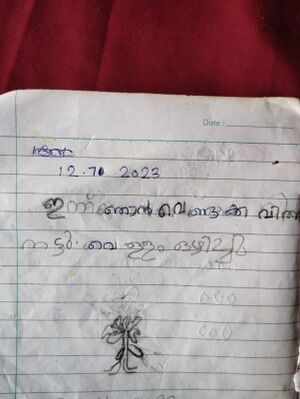 Date:
12.10 2023
ഇന്ന് ഞാൻ വെണ്ടക്ക വിത്ത്
നട്ടു. വെള്ളം ഒഴിച്ചു